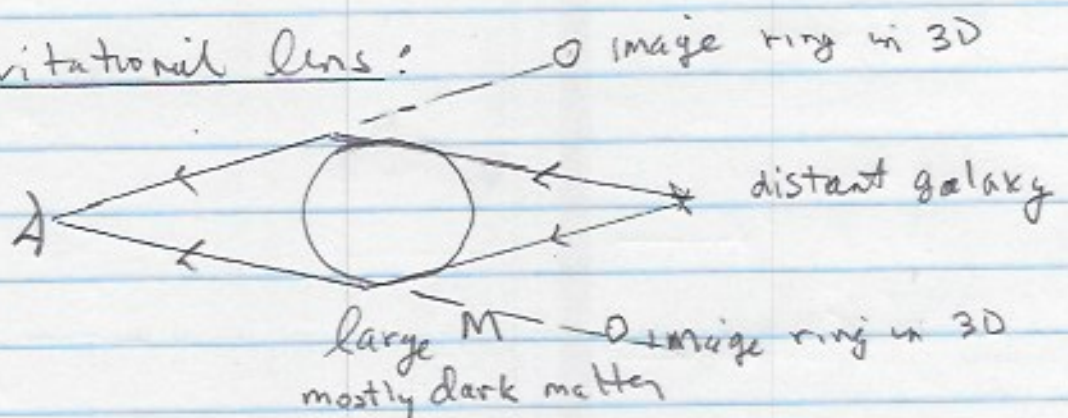 vitational lens:
O image ring in 3D
distant galaxy
large M
O image ring in 3D
mostly dark matter